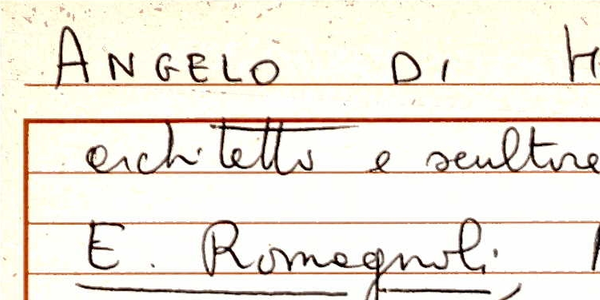 ANGELO DI
architetto e scultore
E. Romagnoli